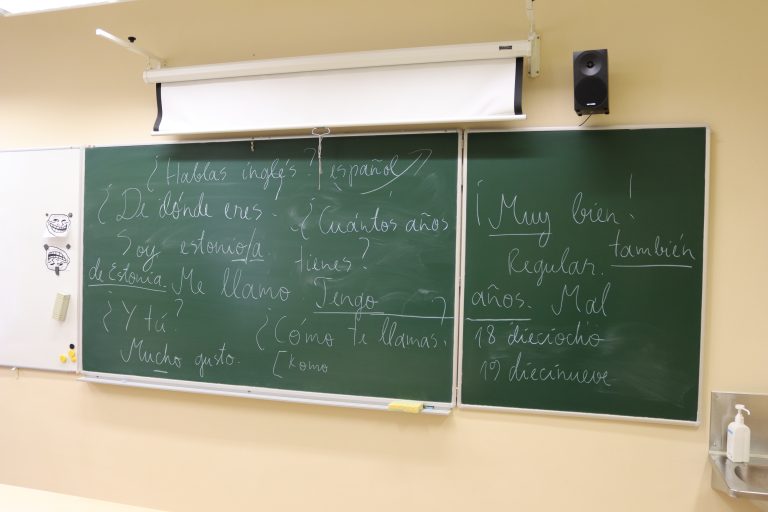 ¿Hablas inglés? español
¿De dónde eres.
¿Cuántos años
Soy estonio/a
tienes?
de Estonia. Me llamo. Tengo ____ años.
¿Y tú?
¿Cómo te llamas.
Mucho gusto.
[komo
¡Muy bien!
también
Regular.
Mal
18 dieciocho
19 diecinueve